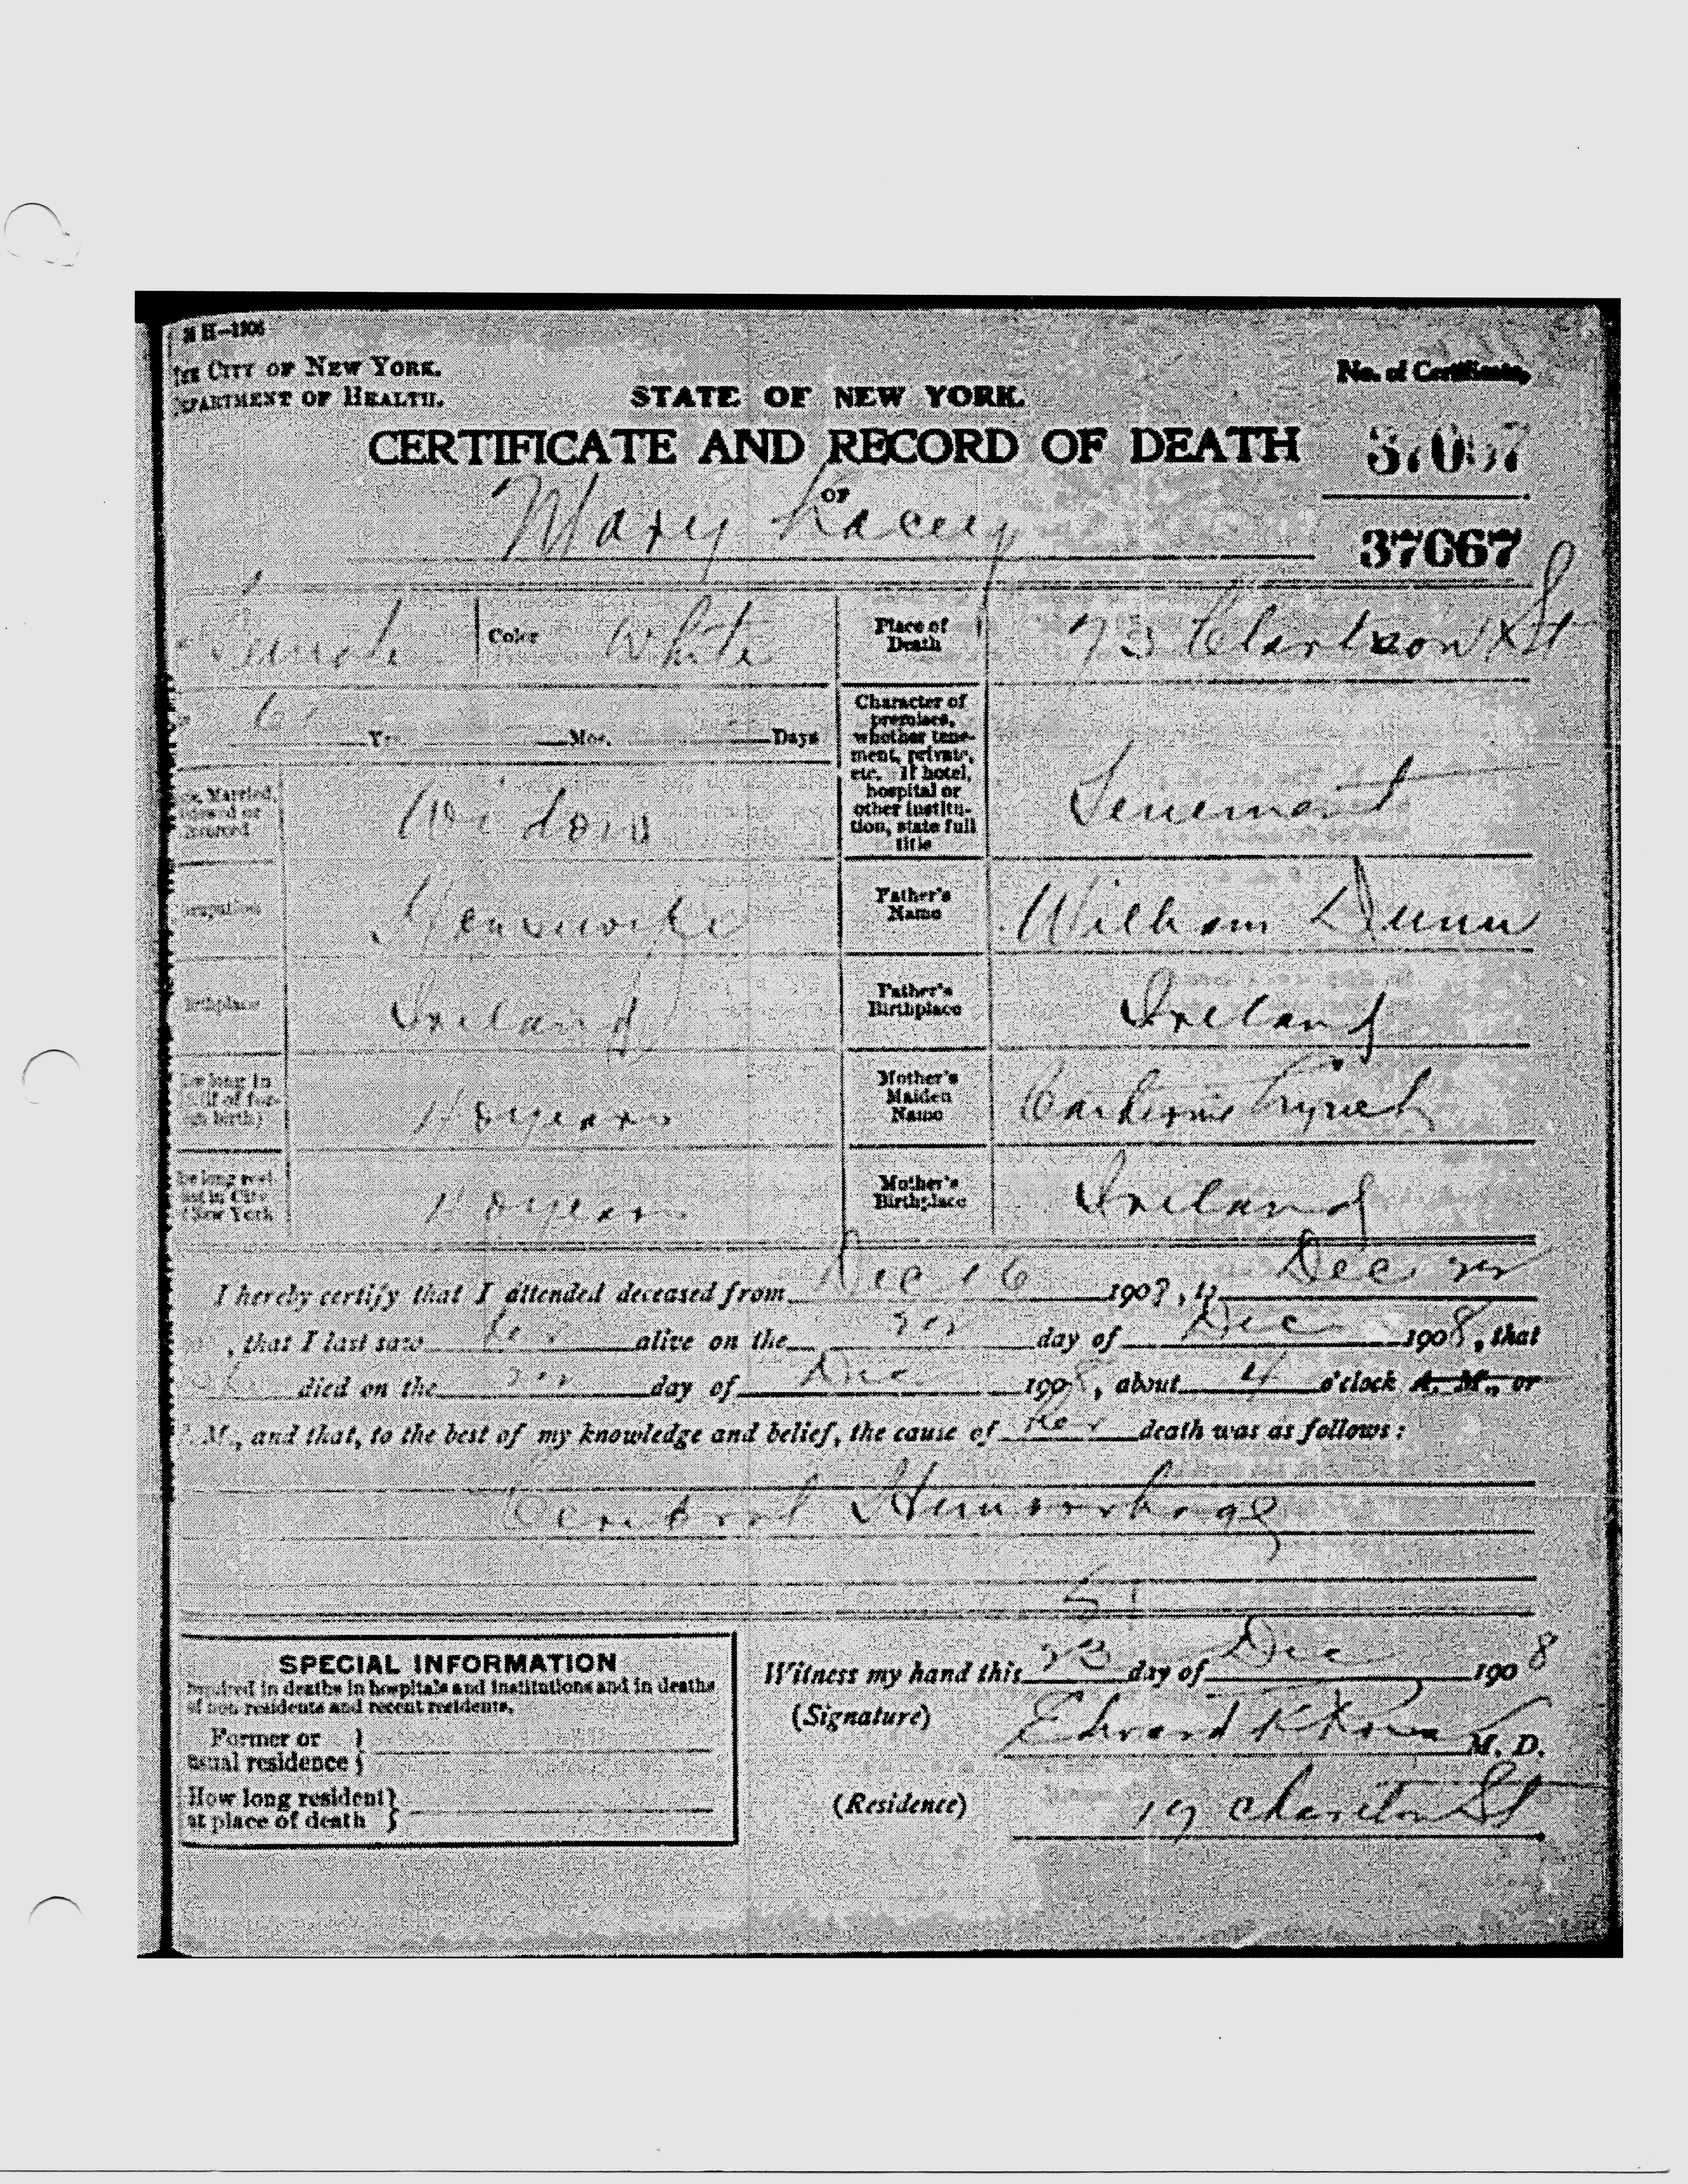 THE CITY OF NEW YORK.
DEPARTMENT OF HEALTH.
No. of Certificate,
STATE OF NEW YORK.
CERTIFICATE AND RECORD OF DEATH
OF
37067
Mary Lacey
37067
Female Color White
Place of Death
73 Clarkson St
Yrs. Mos. Days
Character of premises, whether tenement, private, etc. If hotel, hospital or other institution, state full title
Tenement
Widow
Occupation
Housewife
Father's Name
William Dunn
Birthplace
Ireland
Father's Birthplace
Ireland
40 years
Mother's Maiden Name
Catherine Lynch
40 years
Mother's Birthplace
Ireland
I hereby certify that I attended deceased from Dec 16 1908, to Dec 22
, that I last saw her alive on the 22 day of Dec 1908, that
died on the 22 day of Dec 1908, about 4 o'clock A. M., or
P. M., and that, to the best of my knowledge and belief, the cause of her death was as follows:
Cerebral Hemorrhage
SPECIAL INFORMATION
required in deaths in hospitals and institutions and in deaths
of non residents and recent residents.
Former or
usual residence
How long resident
at place of death
Witness my hand this 23 day of Dec 1908
(Signature) Edward M. D.
(Residence) 19 Charlton St